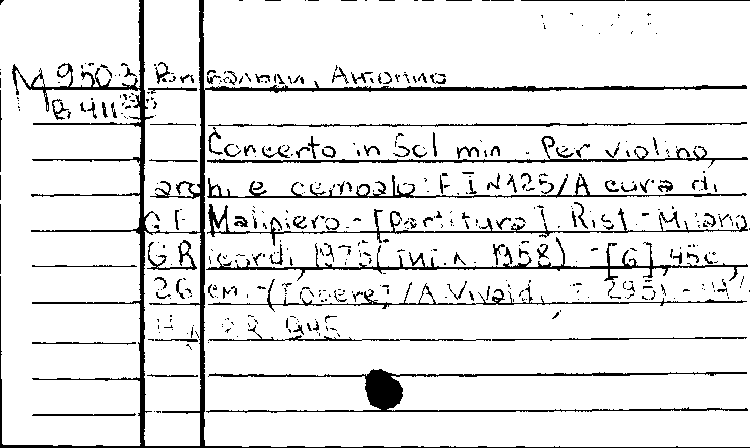 М 9503 Вивальди, Антонио
В 411
Concerto in Sol min. Per violino,
archi e cembalo: F. I N125/A cura di
G. F. Malipiero. - [Partitura]. Rist. - Milano
G. Ricordi, 1975 (тит. л. 1958). - [6], 45 c,
26 cm. - ([Opere] / A. Vivaldi, T. 295) -
945